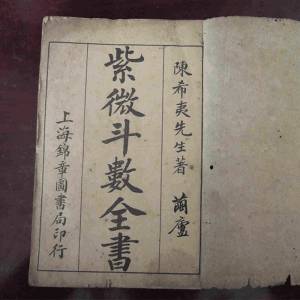 陳希夷先生著
蕳廬
紫微斗數全書
上海錦章圖書局印行